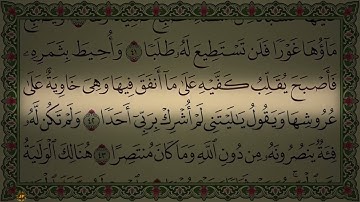 مَآؤُهَا غَوْرًا فَلَن تَسْتَطِيعَ لَهُۥ طَلَبًا ٤١ وَأُحِيطَ بِثَمَرِهِۦ
فَأَصْبَحَ يُقَلِّبُ كَفَّيْهِ عَلَىٰ مَآ أَنفَقَ فِيهَا وَهِىَ خَاوِيَةٌ عَلَىٰ
عُرُوشِهَا وَيَقُولُ يَٰلَيْتَنِى لَمْ أُشْرِكْ بِرَبِّىٓ أَحَدًا ٤٢ وَلَمْ تَكُن لَّهُۥ
فِئَةٌ يَنصُرُونَهُۥ مِن دُونِ ٱللَّهِ وَمَا كَانَ مُنتَصِرًا ٤٣ هُنَالِكَ ٱلْوَلَٰيَةُ